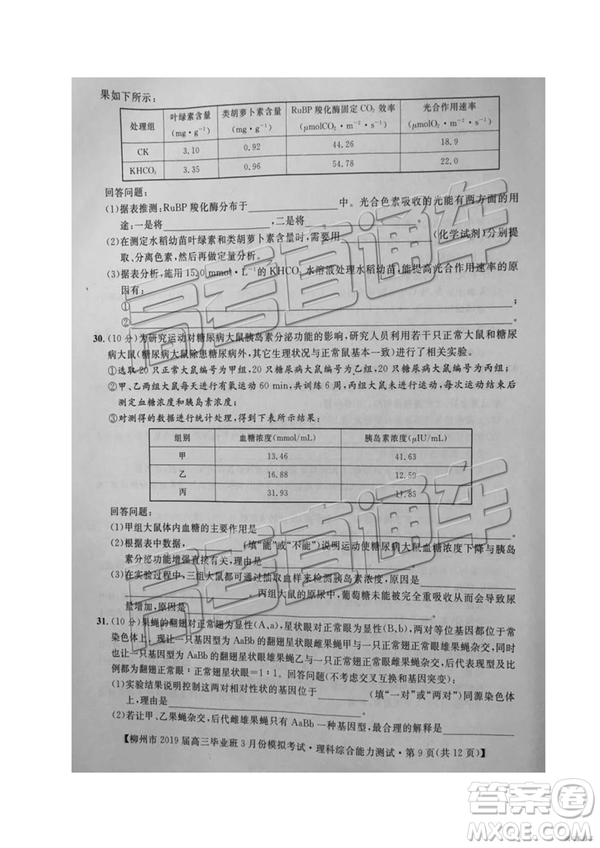 果如下所示：
处理组 叶绿素含量(mg·g⁻¹) 类胡萝卜素含量(mg·g⁻¹) RuBP羧化酶固定CO₂效率(μmolCO₂·m⁻²·s⁻¹) 光合作用速率(μmolO₂·m⁻²·s⁻¹)
CK 3.10 0.92 44.26 18.9
KHCO₃ 3.35 0.96 54.78 22.0
回答问题：
(1)据表推测：RuBP羧化酶分布于____中。光合色素吸收的光能有两方面的用
途：一是将____，二是将____。
(2)在测定水稻幼苗叶绿素和类胡萝卜素含量时，需用____(化学试剂)分别提
取、分离色素。
(3)据表分析，能用15.0 mmol·L⁻¹的KHCO₃水溶液处理水稻幼苗，能提高光合作用速率的原
因有：
①____
②____。
30.(10分)为研究运动对糖尿病大鼠胰岛素分泌功能的影响，研究人员利用若干只正常大鼠和糖尿
病大鼠(糖尿病大鼠除患糖尿病外，其它生理状况与正常鼠基本一致)进行相关实验。
①选取20只正常大鼠为甲组，20只糖尿病大鼠为乙组，20只糖尿病大鼠为丙组。
②甲、乙两组大鼠每天进行有氧运动60 min，共训练6周，每次运动结束后
测定血糖浓度和胰岛素浓度。
③对测得的数据进行统计处理，得到下表所示结果：
组别 血糖浓度(mmol/mL) 胰岛素浓度(μIU/mL)
甲 13.46 41.63
乙 16.88 12.59
丙 31.93 11.85
回答问题：
(1)甲组大鼠体内血糖的主要作用是____。
(2)根据表中数据，____(填“能”或“不能”)说明运动使糖尿病大鼠血糖浓度下降与胰岛
素分泌功能增强直接有关，理由是____。
(3)在实验过程中，三组大鼠都可通过抽取血样来检测胰岛素浓度，其依据是
____。丙组大鼠的原尿中，葡萄糖未能被完全重吸收，会导致尿
量增加，原因是____。
31.(10分)果蝇的翻翅对正常翅为显性(A、a)，星状眼对正常眼为显性(B、b)，两对等位基因位于常
染色体上。现让一只基因型为AaBb的翻翅星状眼雄果蝇与
比例均为翻翅正常眼：正常翅星状眼=1：1。回答问题：
(1)据此结果可说明控制这两对相对性状的基因位于____(填“一对”或“两对”)同源染色体
上，理由是____。
(2)若让甲、乙果蝇杂交，后代雌雄果蝇只有AaBb一种基因型，最合理的解释是____
【柳州市2019届高三毕业班3月份模拟考试·理科综合能力测试·第9页(共12页)】
高考直通车
答案圈
MXQE.COM